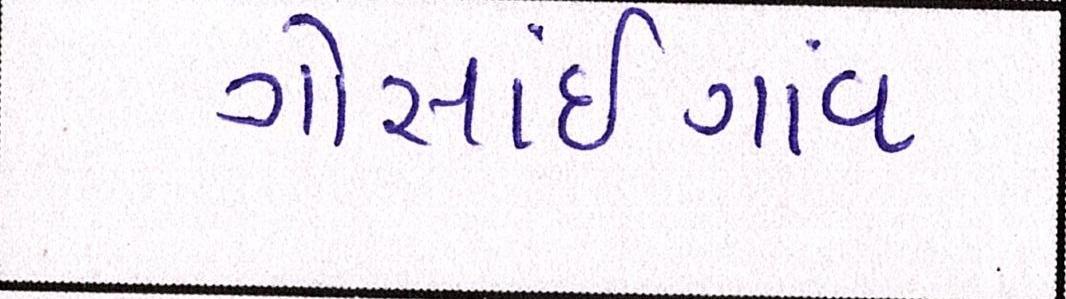 ગોસાંઈગાંવ